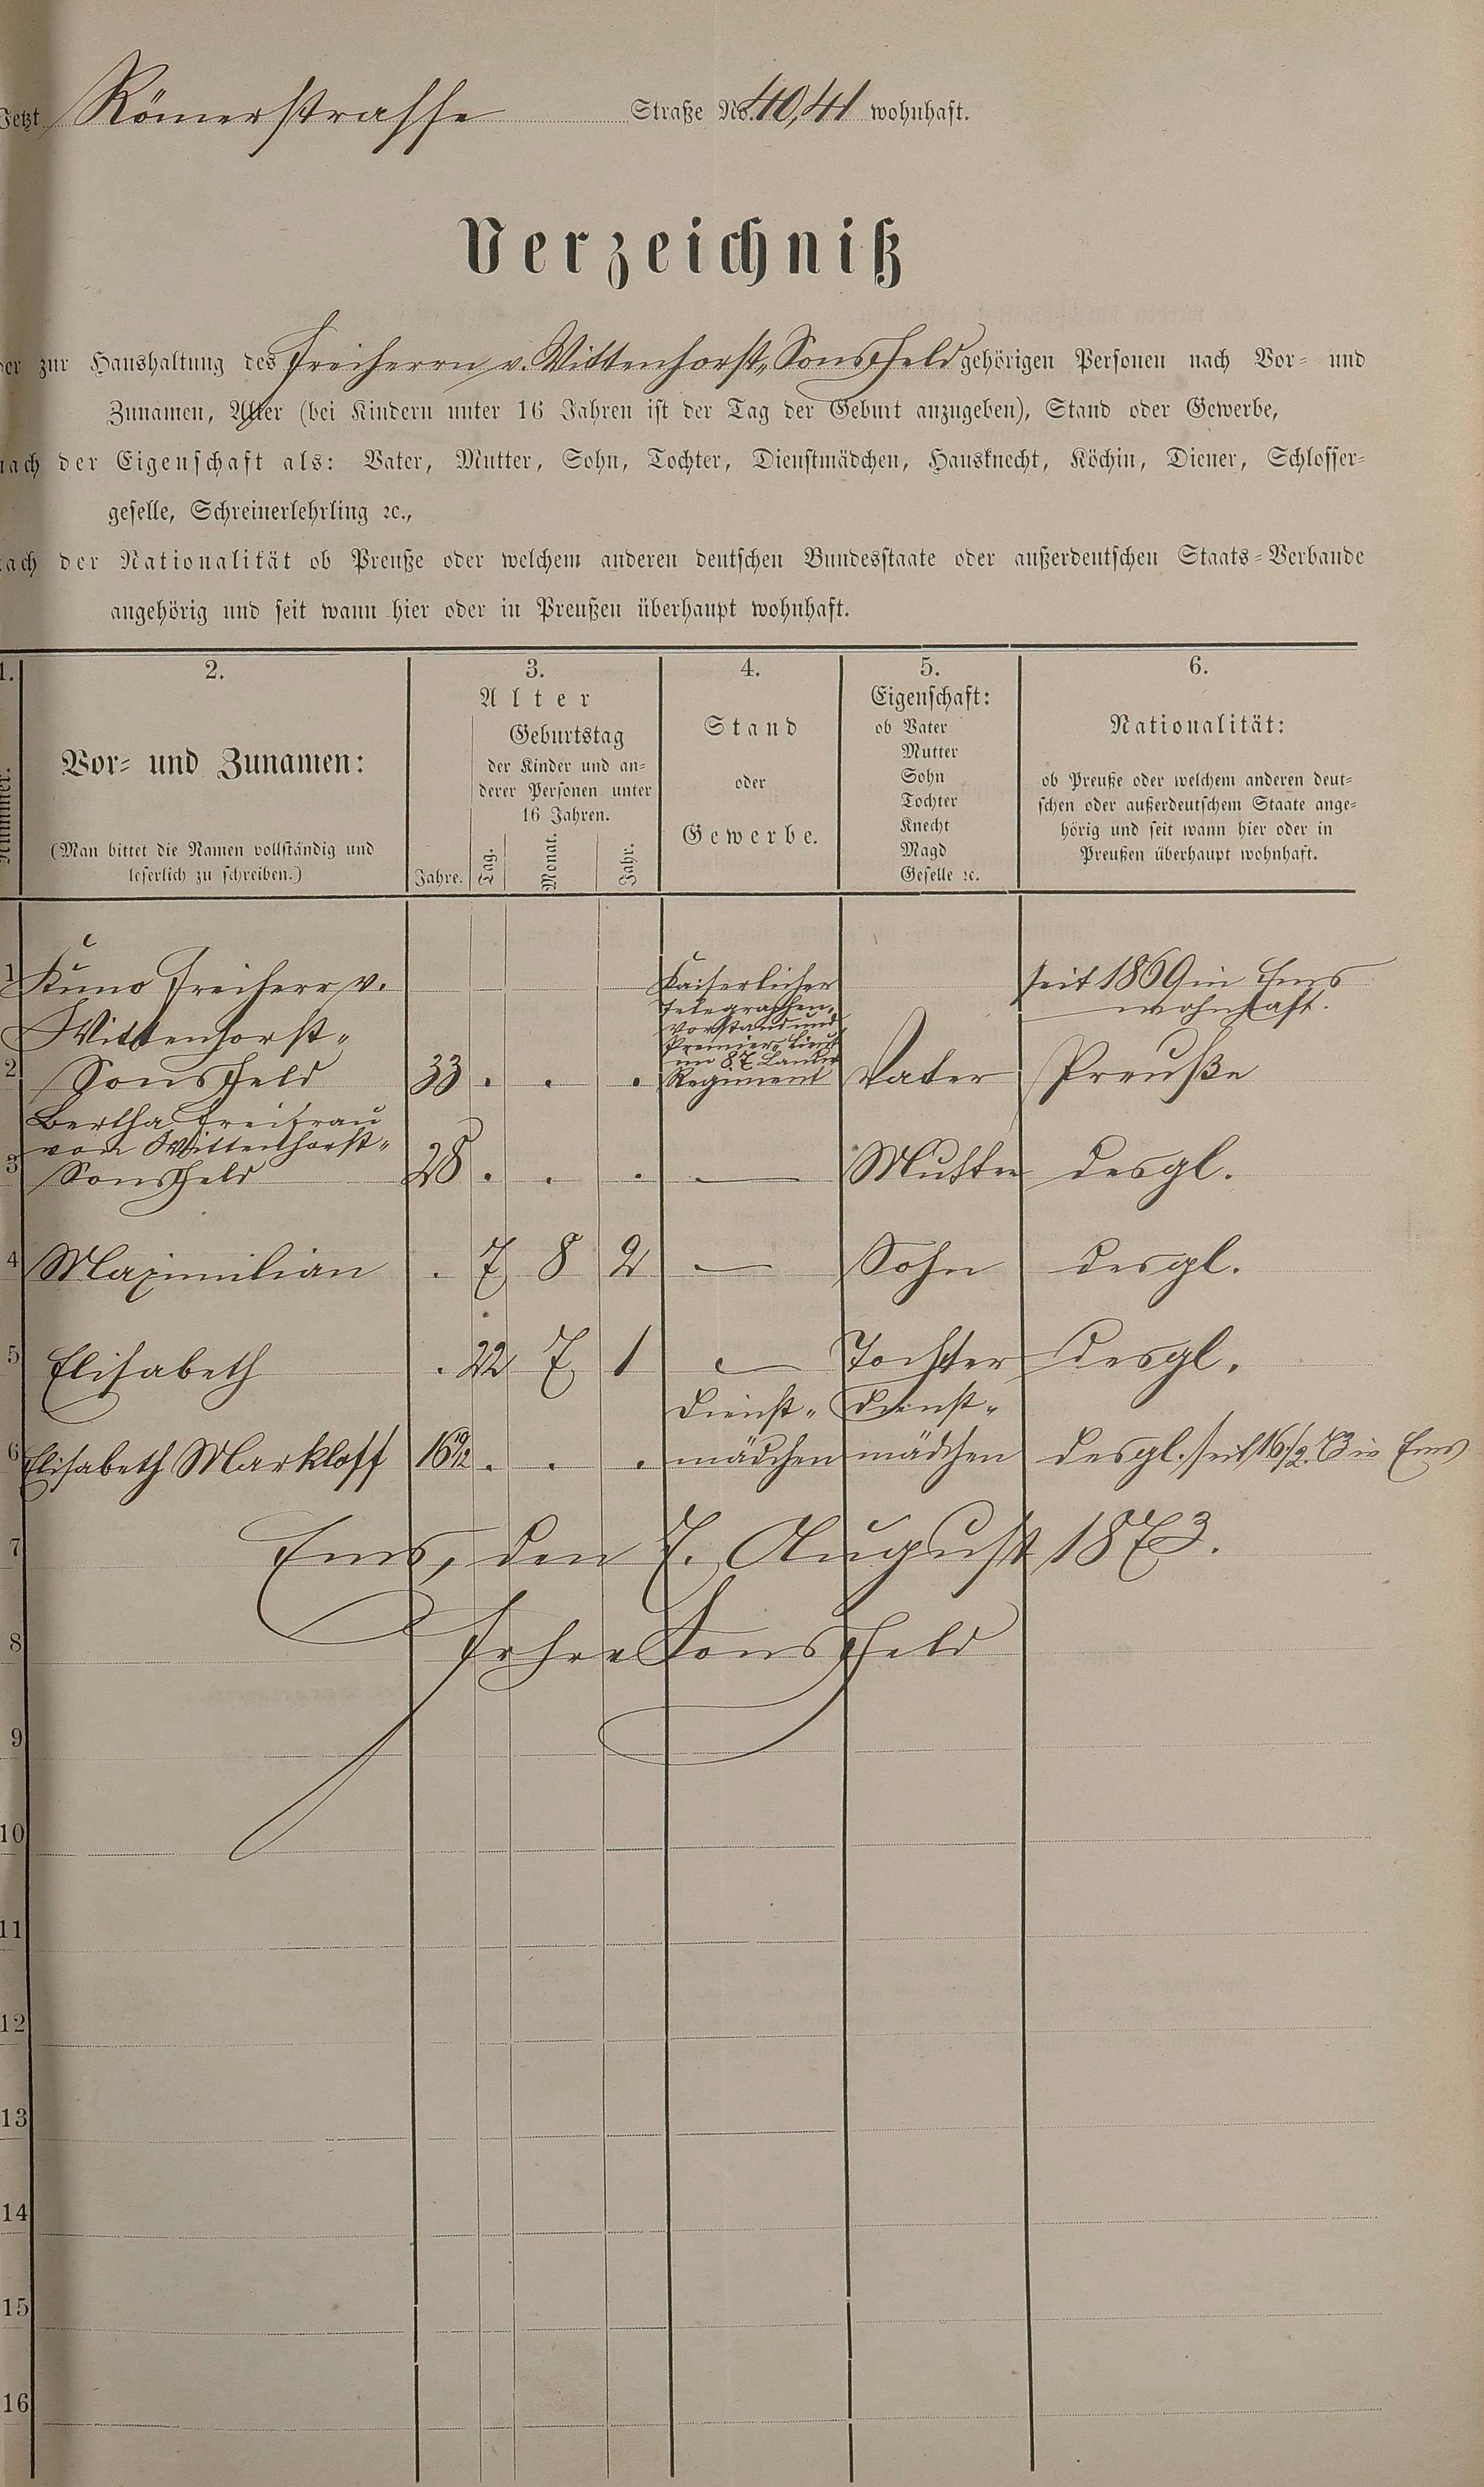 Jetzt Römerstrasse Straße No. 40, 41 wohnhaft.
Verzeichniß
der zur Haushaltung des Freiherrn v. Wittenhorst-Sonsfeld gehörigen Personen nach Vor- und
Zunamen, Alter (bei Kindern unter 16 Jahren ist der Tag der Geburt anzugeben), Stand oder Gewerbe,
nach der Eigenschaft als: Vater, Mutter, Sohn, Tochter, Dienstmädchen, Hausknecht, Köchin, Diener, Schlosser-
geselle, Schreinerlehrling ꝛc.,
nach der Nationalität ob Preuße oder welchem anderen deutschen Bundesstaate oder außerdeutschen Staats-Verbande
angehörig und seit wann hier oder in Preußen überhaupt wohnhaft.
1. 2. 3. 4. 5. 6.
Nummer.
Vor- und Zunamen:
(Man bittet die Namen vollständig und
leserlich zu schreiben.)
Alter
Geburtstag
der Kinder und an-
derer Personen unter
16 Jahren.
Jahre. Tag. Monat. Jahr.
Stand
oder
Gewerbe.
Eigenschaft:
ob Vater
Mutter
Sohn
Tochter
Knecht
Magd
Geselle ꝛc.
Nationalität:
ob Preuße oder welchem anderen deut-
schen oder außerdeutschem Staate ange-
hörig und seit wann hier oder in
Preußen überhaupt wohnhaft.
1 Kuno Freiherr v. Kaiserlicher seit 1869 in Ems
Wittenhorst- Telegraphen- wohnhaft.
Vorstand und
Premier-Lieut
im 87 Landw
2 Sonsfeld 33 . . . Regiment Vater Preuße
Bertha Freifrau
von Wittenhorst-
3 Sonsfeld 28 . . . — Mutter desgl.
4 Maximilian . 7 8 2 — Sohn desgl.
5 Elisabeth . 22 7 1 — Tochter desgl.
Dienst- Dienst-
6 Elisabeth Markloff 16 10/12 . . . mädchen mädchen desgl. seit 16/2. 73 in Ems
7 Ems, den 7. August 1873.
8 Frhr v Sonsfeld
9
10
11
12
13
14
15
16